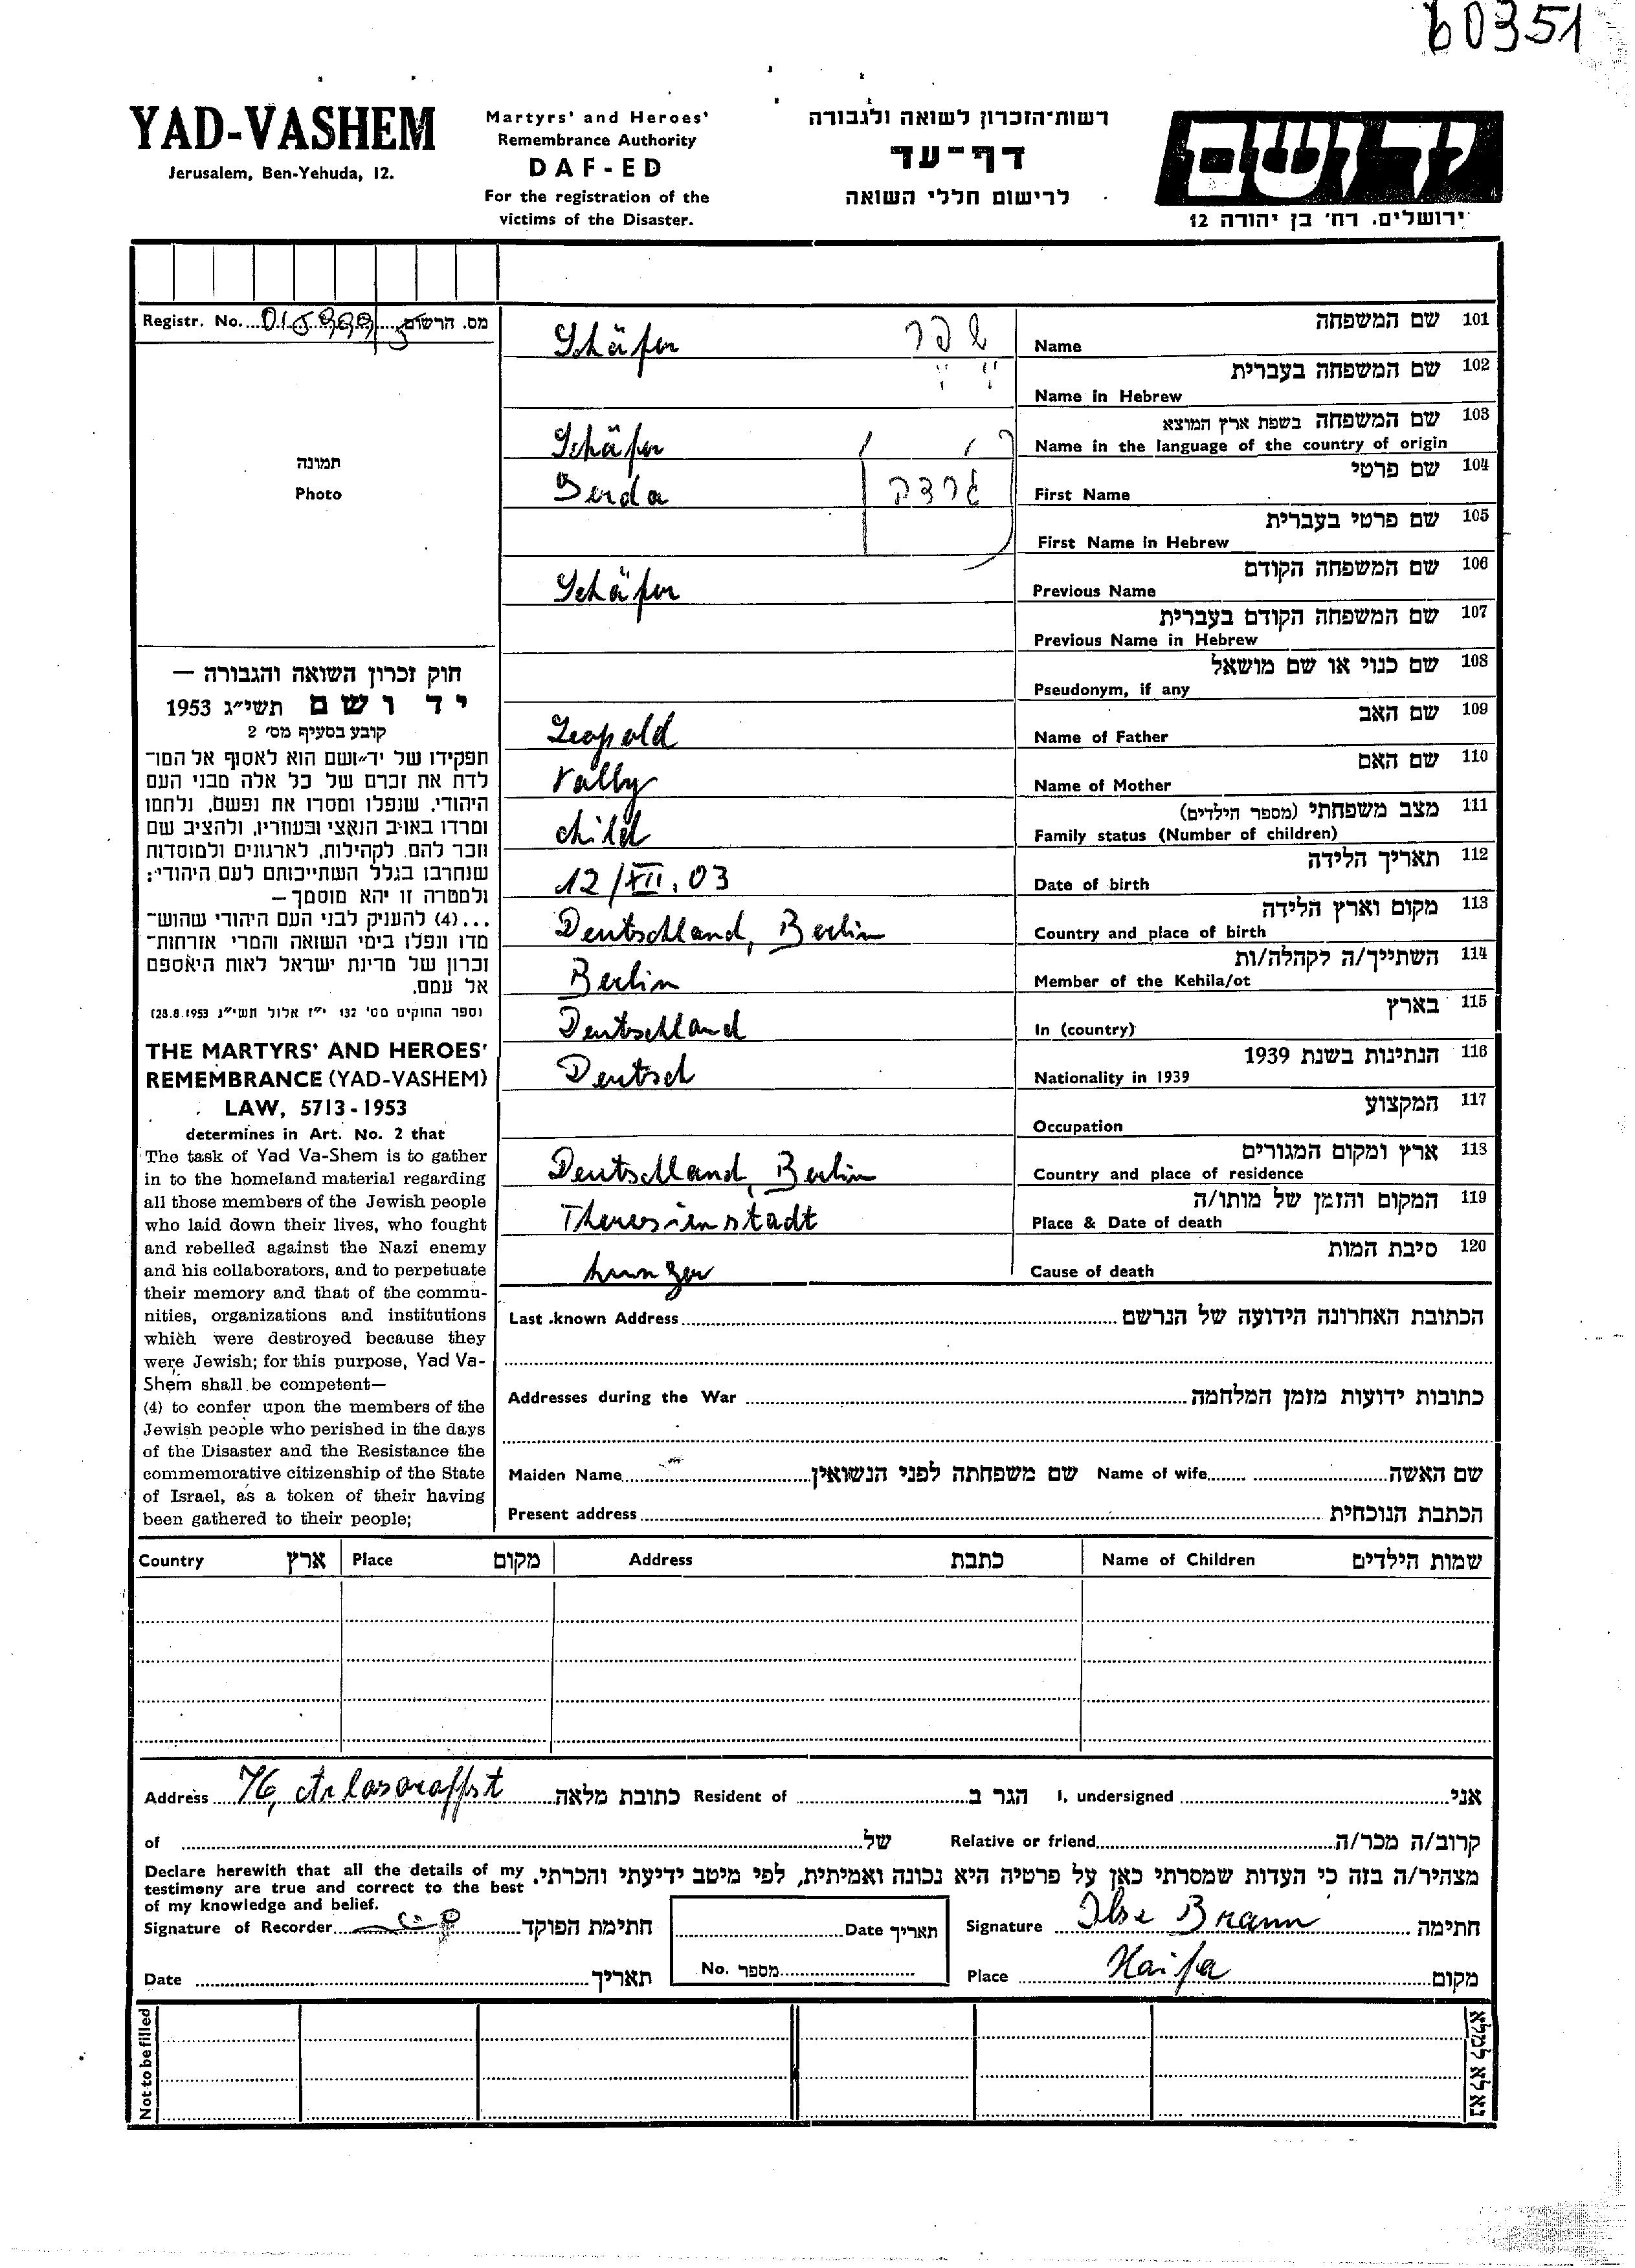 60351
YAD-VASHEM
Jerusalem, Ben-Yehuda, 12.
Martyrs' and Heroes'
Remembrance Authority
DAF-ED
For the registration of the
victims of the Disaster.
רשות-הזכרון לשואה ולגבורה
דף-עד
לרישום חללי השואה
יד ושם
ירושלים. רח' בן יהודה 12
Registr. No. מס. הרשום
תמונה
Photo
חוק זכרון השואה והגבורה —
יד ושם תשי"ג 1953
קובע בסעיף מס' 2
תפקידו של יד-ושם הוא לאסוף אל המו-
לדת את זכרם של כל אלה מבני העם
היהודי, שנפלו ומסרו את נפשם, נלחמו
ומרדו באויב הנאצי ובעוזריו, ולהציב שם
וזכר להם, לקהילות, לארגונים ולמוסדות
שנחרבו בגלל השתייכותם לעם היהודי;
ולמטרה זו יהא מוסמך —
...(4) להעניק לבני העם היהודי שהוש-
מדו ונפלו בימי השואה והמרי אזרחות-
זכרון של מדינת ישראל לאות היאספם
אל עמם.
(ספר החוקים מס' 132 י"ז אלול תשי"ג 28.8.1953)
THE MARTYRS' AND HEROES'
REMEMBRANCE (YAD-VASHEM)
LAW, 5713-1953
determines in Art. No. 2 that
The task of Yad Va-Shem is to gather
in to the homeland material regarding
all those members of the Jewish people
who laid down their lives, who fought
and rebelled against the Nazi enemy
and his collaborators, and to perpetuate
their memory and that of the commu-
nities, organizations and institutions
which were destroyed because they
were Jewish; for this purpose, Yad Va-
Shem shall be competent—
(4) to confer upon the members of the
Jewish people who perished in the days
of the Disaster and the Resistance the
commemorative citizenship of the State
of Israel, as a token of their having
been gathered to their people;
101 שם המשפחה
Schäfer שפר Name
102 שם המשפחה בעברית
Name in Hebrew
103 שם המשפחה בשפת ארץ המוצא
Schäfer Name in the language of the country of origin
104 שם פרטי
Gerda גרדה First Name
105 שם פרטי בעברית
First Name in Hebrew
106 שם המשפחה הקודם
Schäfer Previous Name
107 שם המשפחה הקודם בעברית
Previous Name in Hebrew
108 שם כנוי או שם מושאל
Pseudonym, if any
109 שם האב
Leopold Name of Father
110 שם האם
Vally Name of Mother
111 מצב משפחתי (מספר הילדים)
child Family status (Number of children)
112 תאריך הלידה
12/XII. 03 Date of birth
113 מקום וארץ הלידה
Deutschland, Berlin Country and place of birth
114 השתייך/ה לקהלה/ות
Berlin Member of the Kehila/ot
115 בארץ
Deutschland In (country)
116 הנתינות בשנת 1939
Deutsch Nationality in 1939
117 המקצוע
Occupation
113 ארץ ומקום המגורים
Deutschland, Berlin Country and place of residence
119 המקום והזמן של מותו/ה
Theresienstadt Place & Date of death
120 סיבת המות
hunger Cause of death
Last known Address הכתובת האחרונה הידועה של הנרשם
Addresses during the War כתובות ידועות מזמן המלחמה
Maiden Name שם משפחתה לפני הנשואין Name of wife שם האשה
Present address הכתבת הנוכחית
Country ארץ Place מקום Address כתבת Name of Children שמות הילדים
Address 76, Arlasoroffst כתובת מלאה Resident of הגר ב I, undersigned אני
of של Relative or friend קרוב/ה מכר/ה
Declare herewith that all the details of my
testimony are true and correct to the best
of my knowledge and belief.
מצהיר/ה בזה כי העדות שמסרתי כאן על פרטיה היא נכונה ואמיתית, לפי מיטב ידיעתי והכרתי.
Signature of Recorder חתימת הפוקד Date תאריך Signature Ilse Brann חתימה
Date תאריך No. מספר Place Haifa מקום
Not to be filled נא לא למלא